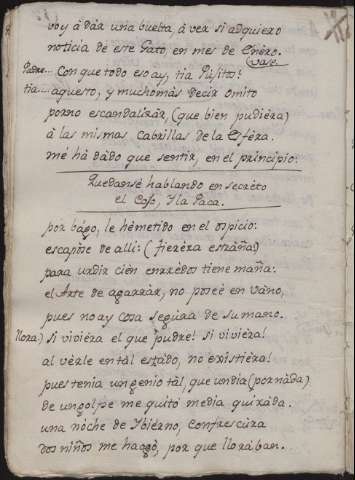 voy à dàr una buelta, à ver si adquiero
noticia de este Gato en mes de Enéro.
vase
Padre... Con que todo eso ay, tia Pusitos?
tia... aquesto, y mucho màs decir omito
por no escandalizàr, (que bien pudiéra)
à las mismas Cabrillas de la Esféra.
mé hà dàdo que sentir, en el principio:
Quedansé hablando en secréto
el Cojo, Y la Paca.
por bágo, le hé metido en el ospicio:
escapóse de alli: (fieréra estràña)
para urdir cien enrrédos tiene maña:
el Arte de agarràr, no poseé en vàno,
pues no ay cosa segùra de su mano.
llora) Si viviéra el que pudre! Si viviéra!
al vérle en tàl estàdo, no existiéra!
pues tenia un genio tàl, que un dia (por nàda)
de un golpe me quitó media quixàda.
una nóche de Ybiérno, con frescùra
dos niños me haogò, por que lloràban.